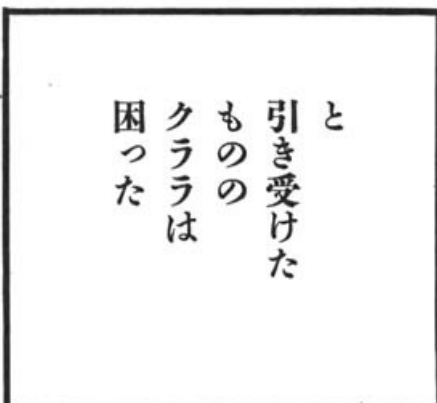 と
引き受けた
ものの
クララは
困った